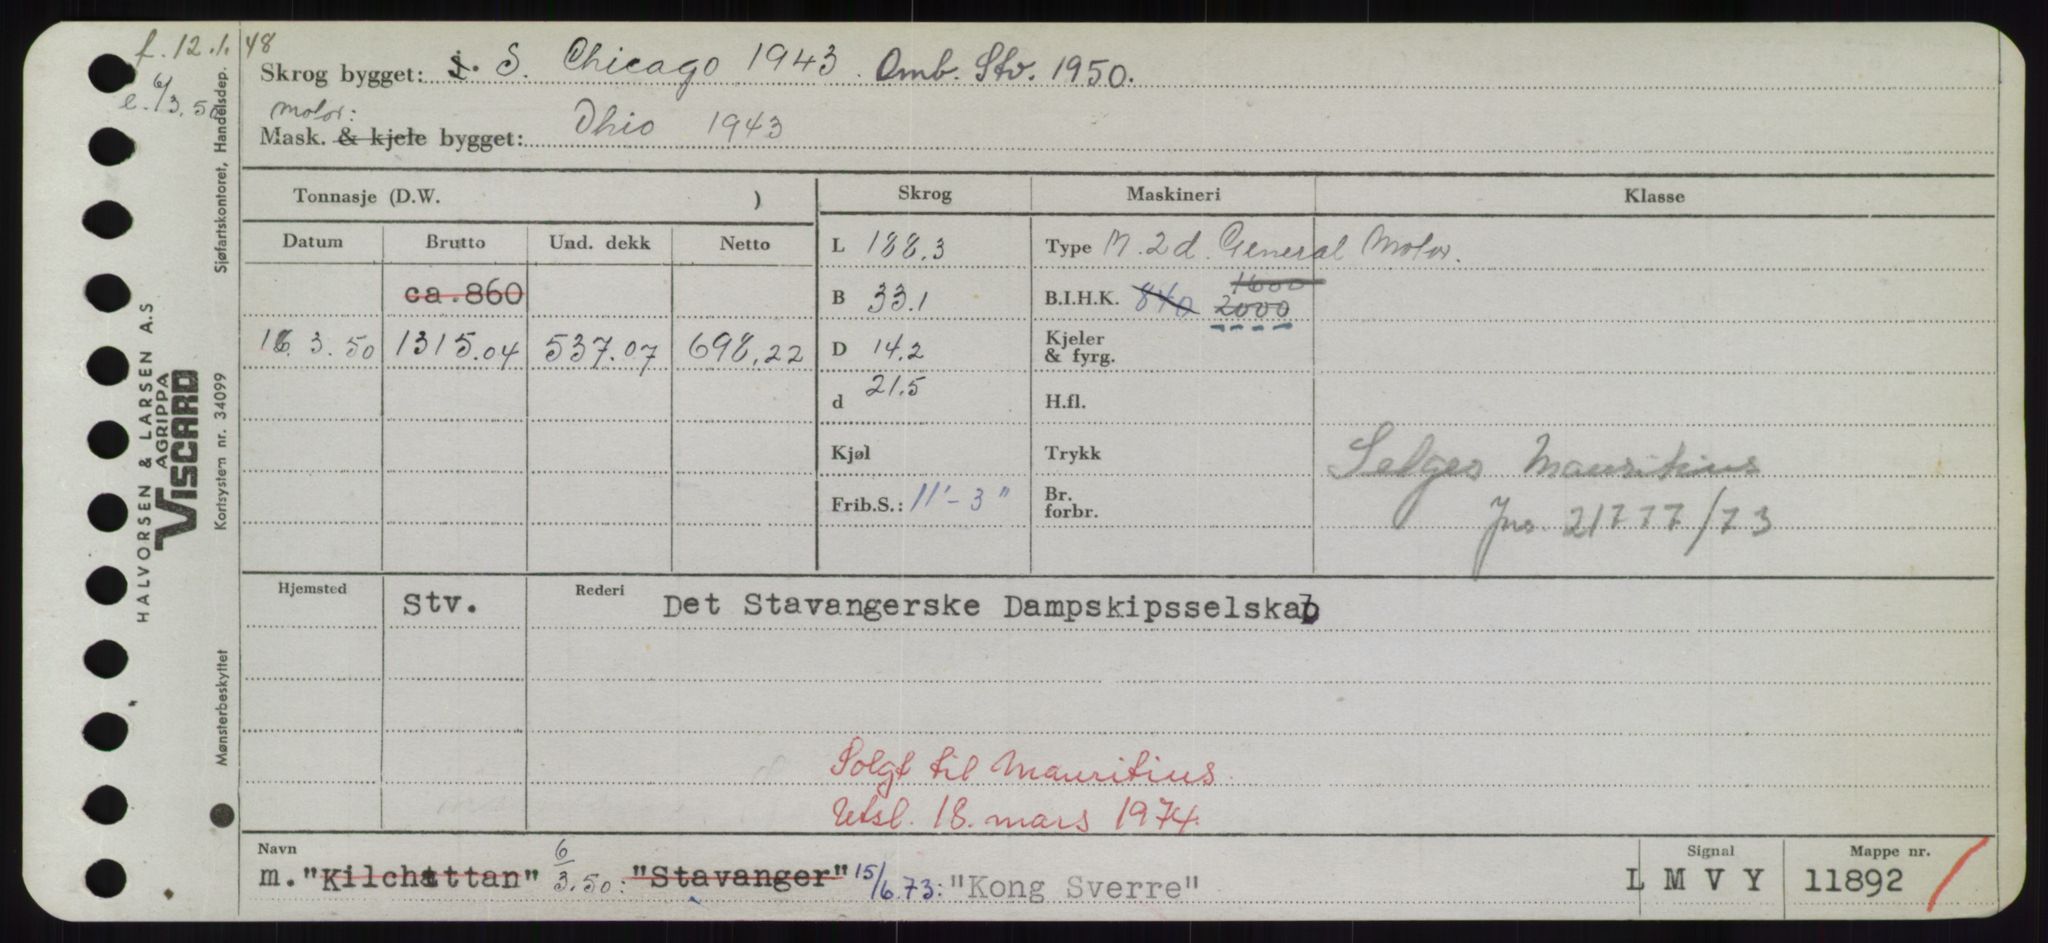 f. 12.1.48
e. 6/3.50
Skrog bygget: S. Chicago 1943. Omb. Stv. 1950.
Motor:
Mask. & kjele bygget: Ohio 1943
Tonnasje (D.W. )
Skrog
Maskineri
Klasse
Datum
Brutto
Und. dekk
Netto
L 188.3
Type M. 2d. General Motor.
ca. 860
B 33.1
1600
B.I.H.K. 840 2000
16.3.50 1315.04 537.07 698.22
D 14.2
Kjeler & fyrg.
21.5
d
H.fl.
Kjøl
Trykk
Selges Mauritius
Frib.S.: 11'-3"
Br. forbr.
Jnr. 21777/73
Hjemsted Stv.
Rederi Det Stavangerske Dampskipsselskab
Solgt til Mauritius.
Utsl. 18. mars 1974.
Navn
Signal
Mappe nr.
m. "Kilchattan" 6/3.50: "Stavanger" 15/6.73: "Kong Sverre"
L M V Y
11892
HALVORSEN & LARSEN A.S
AGRIPPA
VISCARD
Mønsterbeskyttet Kortsystem nr. 34099 Sjøfartskontoret, Handelsdep.